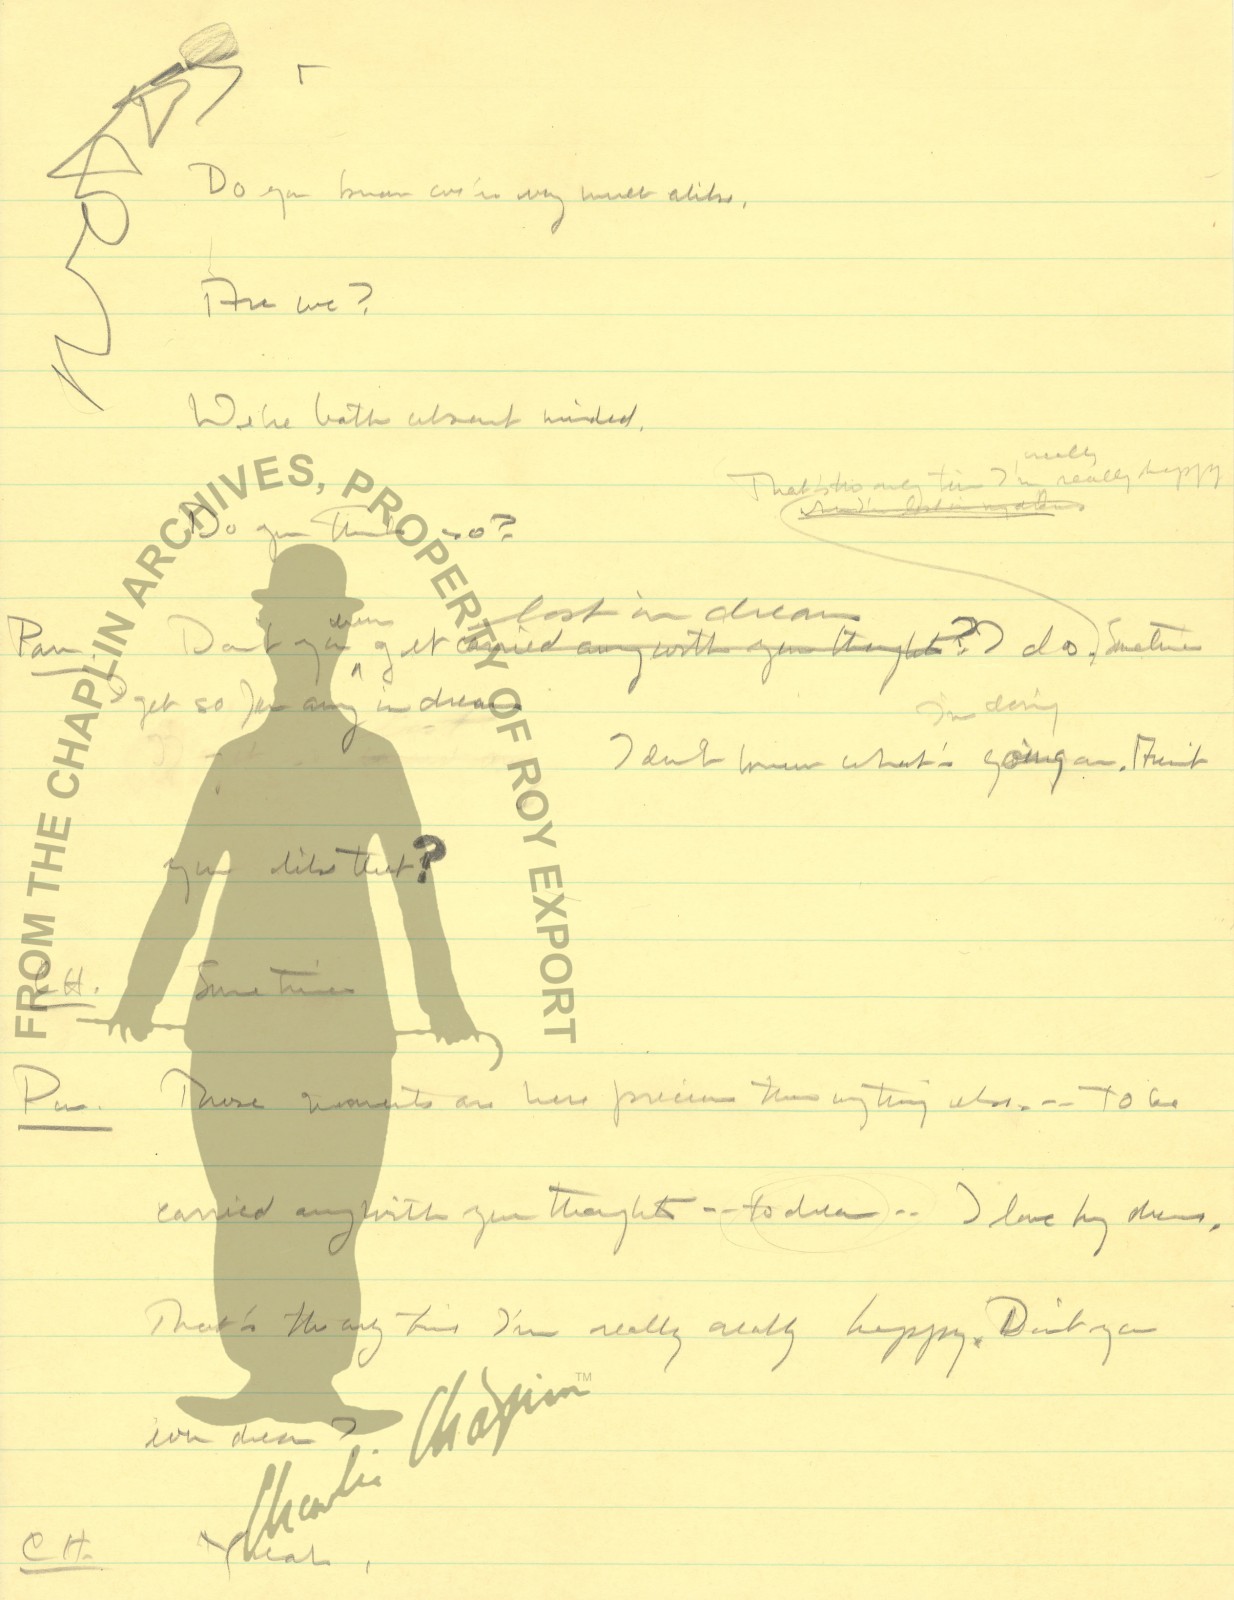 Do you know we're very much alike.
Are we?
We're both absent minded.
really
That's the only time I'm really happy
when I'm lost in my
Do you think so?
lost in dream
ever
Pau. Don't you get carried away with your thought? I do. Sometimes
I get so far away in dreams
I'm doing
I don't know what's going on. Aren't
you like that?
C H. Sometimes
Pau. Those moments are more precious than anything else. -- To be
carried away with your thoughts -- to dream -- I love my dreams.
That's the only time I'm really really happy. Don't you
ever dream?
C H. Yeah.
FROM THE CHAPLIN ARCHIVES, PROPERTY OF ROY EXPORT
Charlie Chaplin™